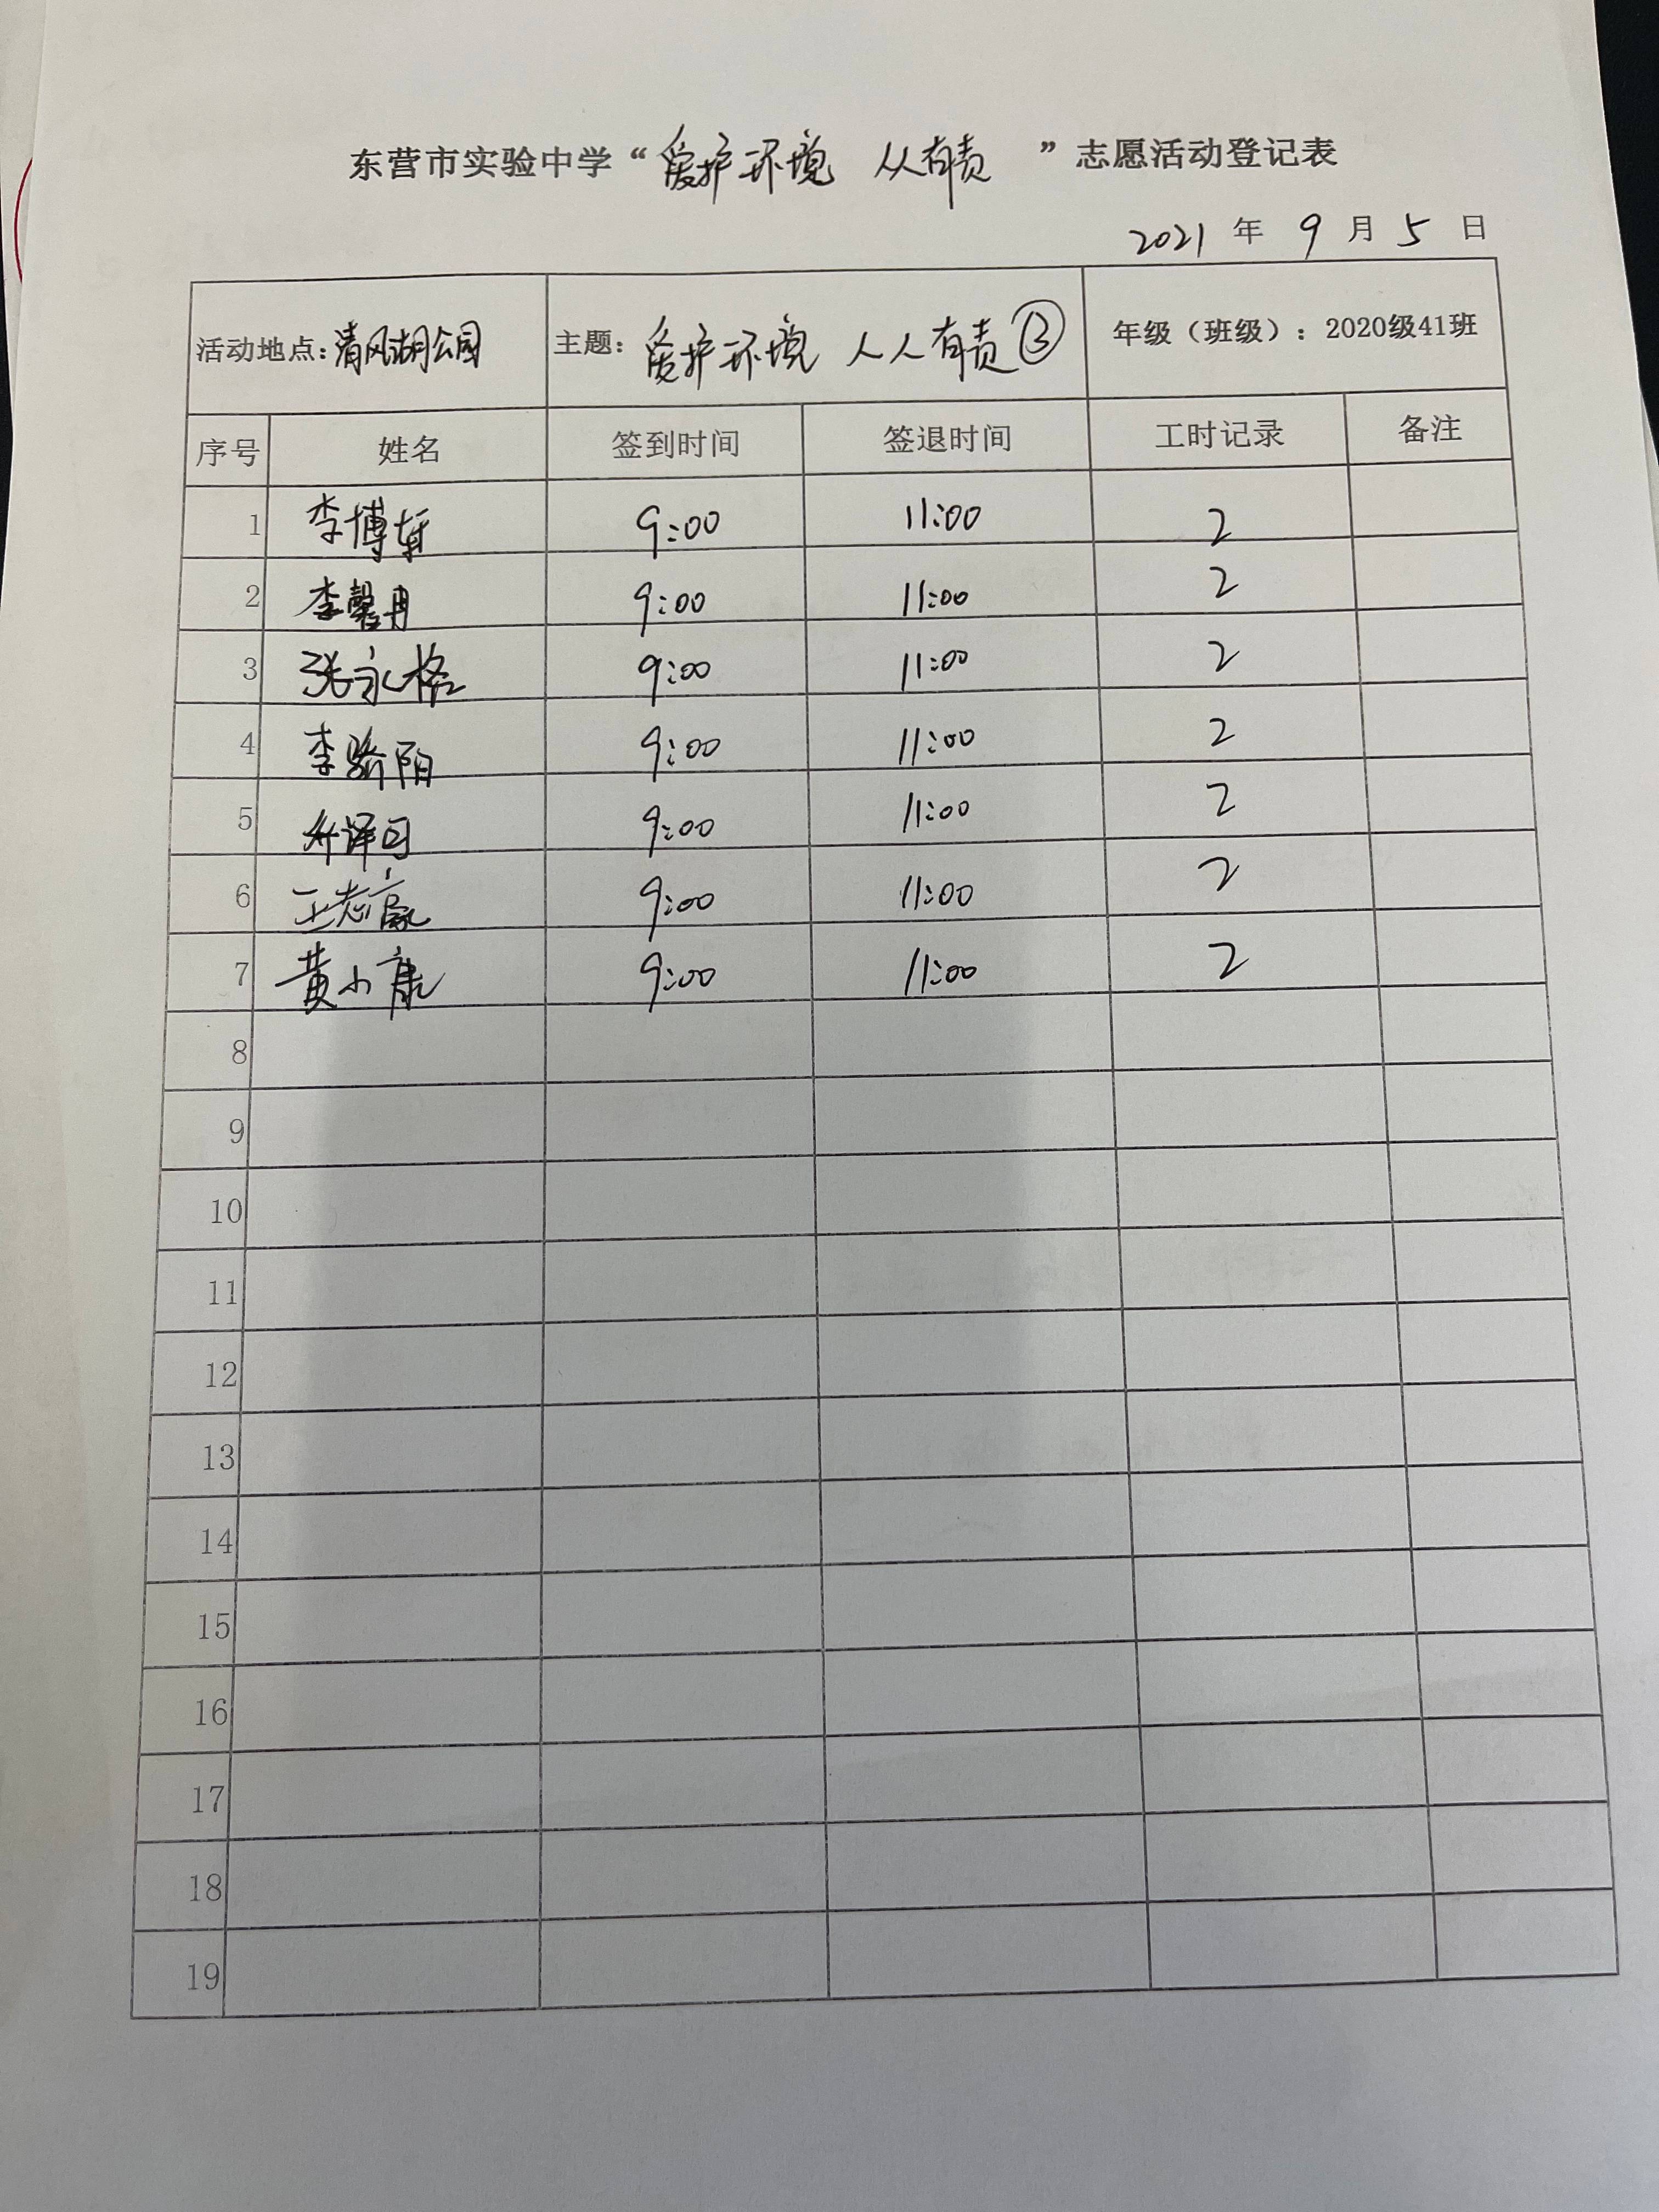 东营市实验中学“爱护环境 人人有责 ”志愿活动登记表
2021 年 9 月 5 日
活动地点：清风湖公园 主题：爱护环境 人人有责③ 年级（班级）：2020级41班
序号 姓名 签到时间 签退时间 工时记录 备注
1 李博轩 9:00 11:00 2
2 李馨冉 9:00 11:00 2
3 张永格 9:00 11:00 2
4 李骄阳 9:00 11:00 2
5 9:00 11:00 2
6 王志豪 9:00 11:00 2
7 黄小康 9:00 11:00 2
8
9
10
11
12
13
14
15
16
17
18
19